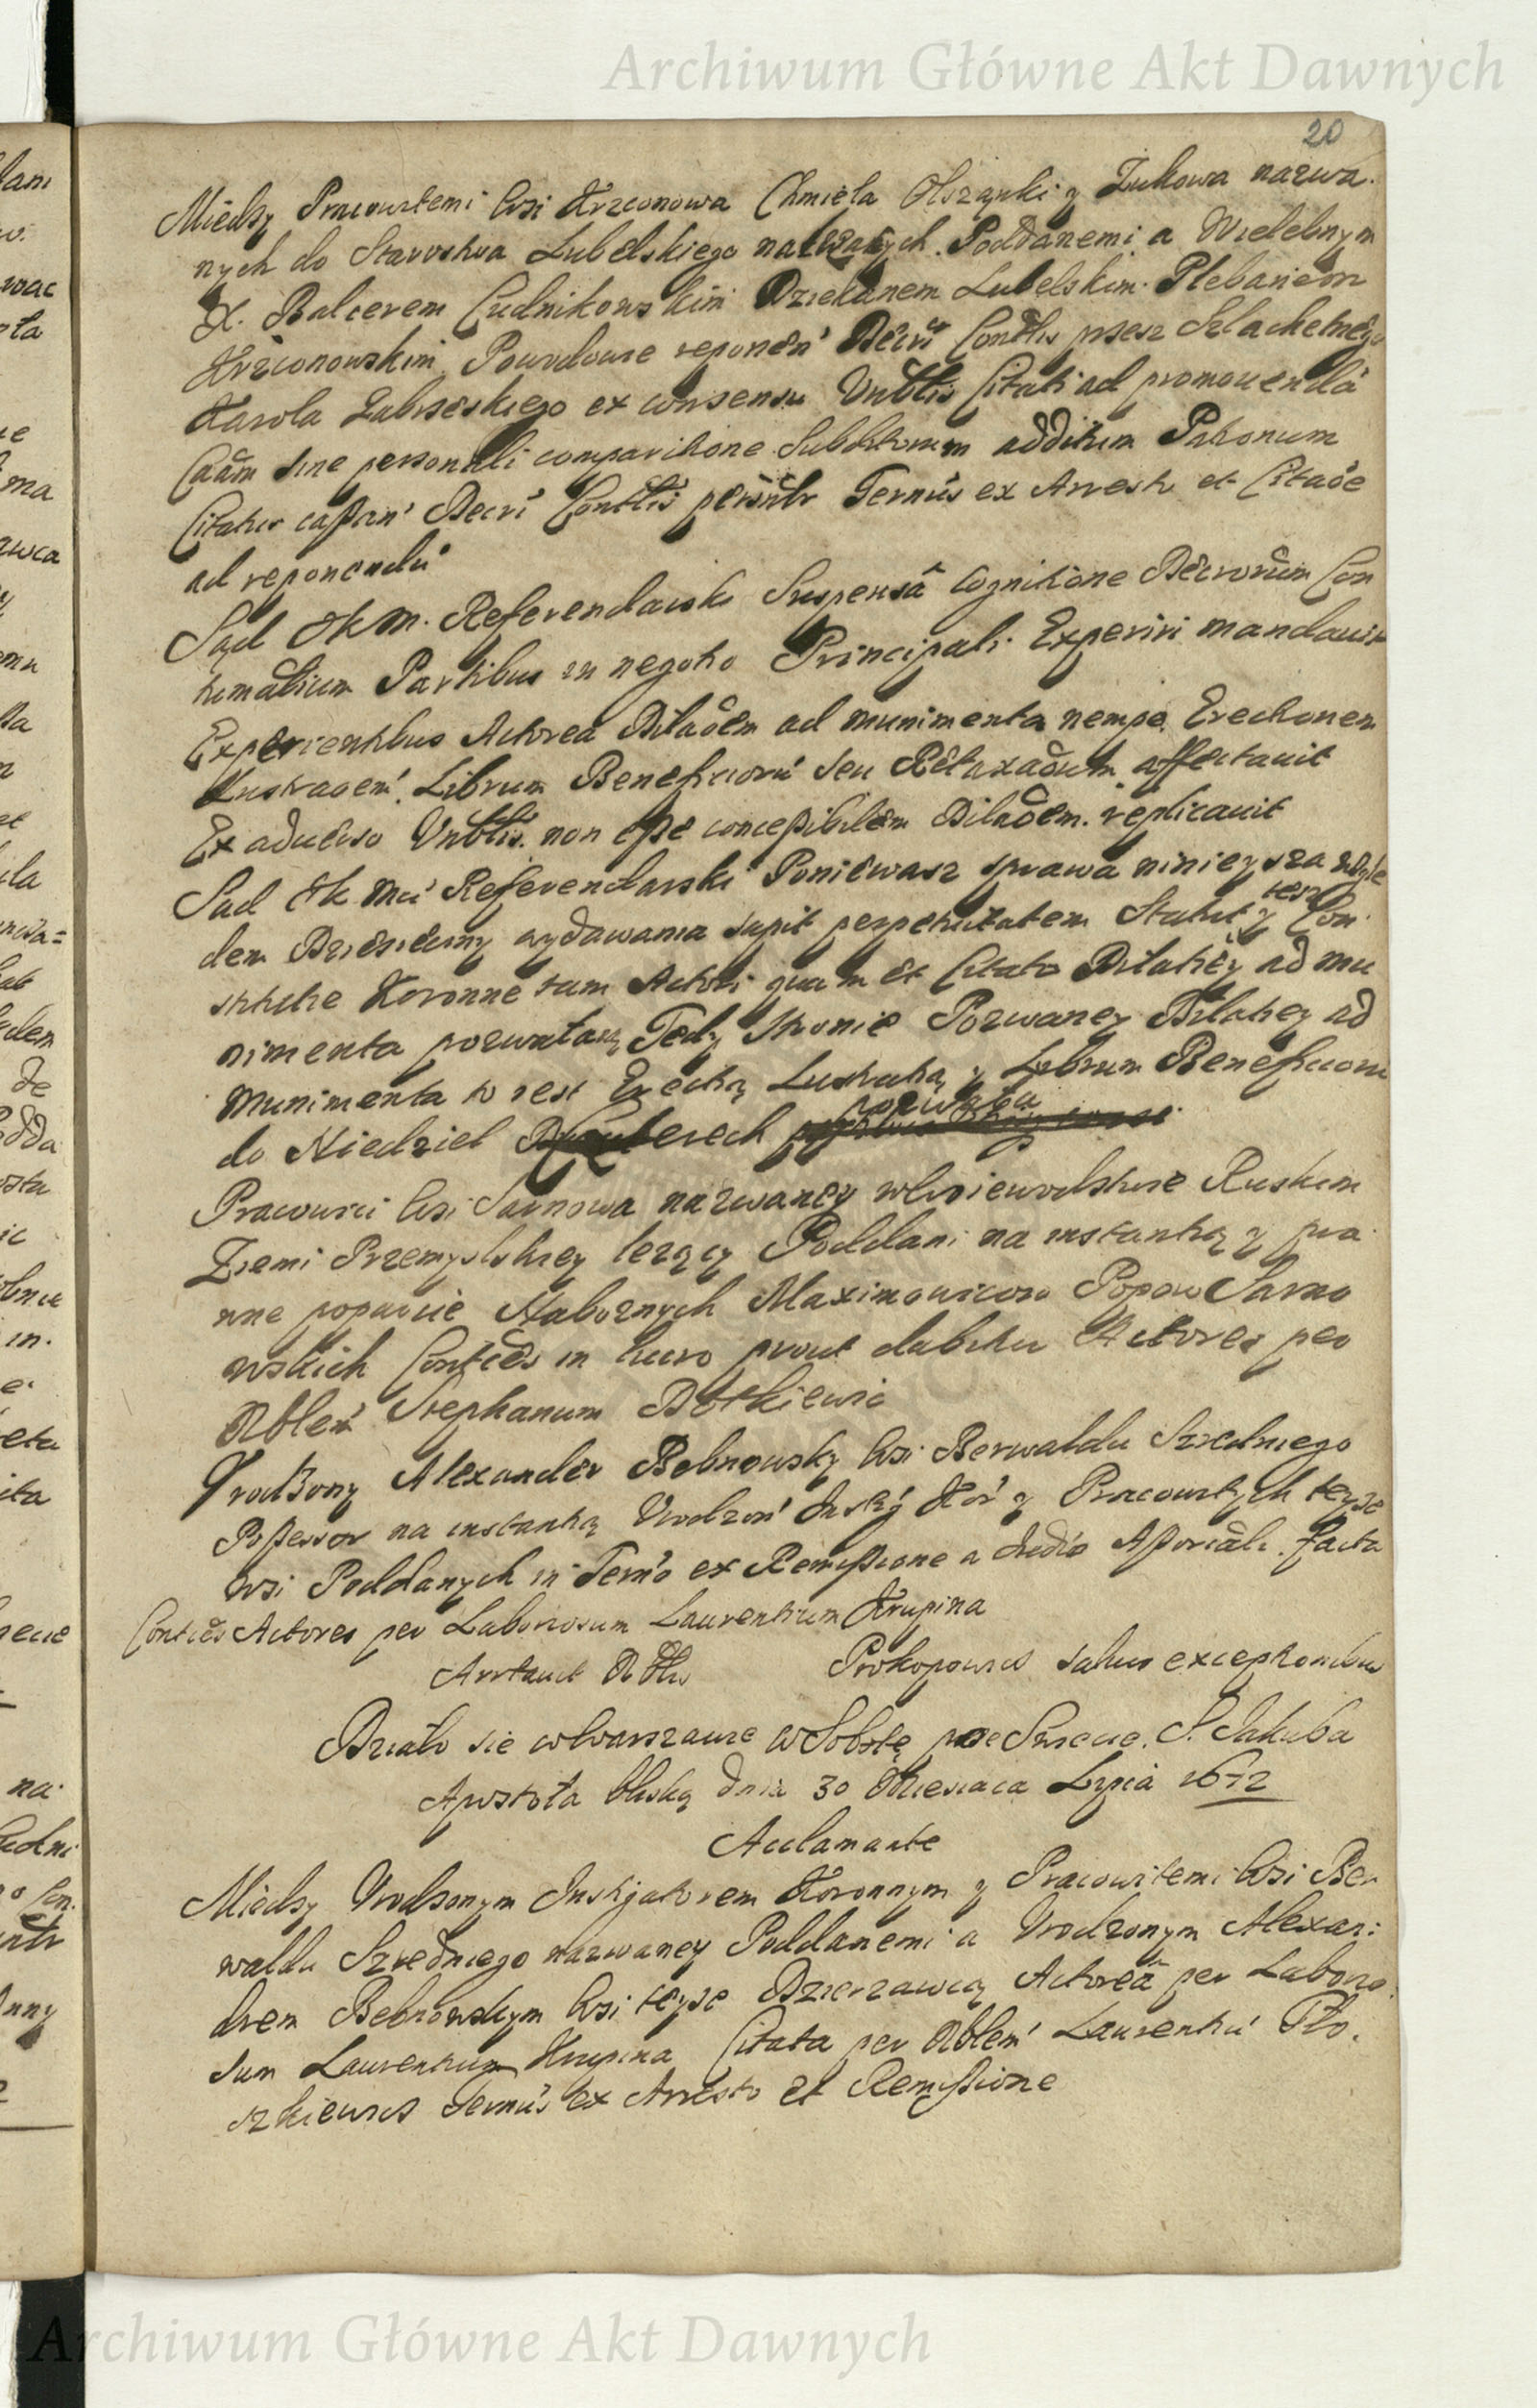 Archiwum Główne Akt Dawnych
20
Między Pracowitemi Wsi Krzconowa Chmiela Olszanki y Żukowa nazwa.
nych do Starostwa Lubelskiego należących Poddanemi a Wielebnym
X. Balcerem Cudnikowskim Dziekanem Lubelskim Plebanem
Krzconowskim Powodowie reponén Décrú Conttis przesz Szlachetnego
Karola Zabrzeskiego ex consensu Vnbtlis Citati ad promouendã
Caãm sine personali comparitione Subditorum additum Patronum
Citatus Decri Conttis Termús ex Arresto et Citaõe
ad reponendú
Sąd JKM. Referendarski Suspensâ cognitione Décrorum Con
tumatium Partibus in negotio Principali Experiri mandauit
Experientibus Actorea Dilaõem ad munimenta nempe Erectionem
Lustraõem Librum Beneficiorú seu Rétaxaõum affectauit
Ex aduerso Vnbtlis non esse concessibilem Dilaõem replicauit
Sąd Jk Mci Referendarski Poniéwasz sprawa ninieysza wzglę
dem Dziesięciny wydawania sapit perpetuitatem Statut y tesz Con
stitutie Koronne tam Actori quam et Citato Dilatiey ad mu
nimenta pozwalaią Tedy Stronie Pozwaney Dilatiey ad
munimenta to iest Erectią Lustratią y Librum Beneficiorú
do Niedziel czterech pozwala
Pracowici Wsi Sarnowa nazwaney wWoiewodstwie Ruskim
Ziemi Przemyslskiey leżący Poddani na instantią y pra
wne poparcie Nabożnych Maximowicow Popow Sarno
wskich Conttês in huius prout dabitur Actores per
Nblem Stephanum Botkiewic
Vrodzony Alexander Bobrowsky Wsi Berwaldu Szredniego
Possessor na instantią Vrodzon Instig Kor y Pracowitych teyze
wsi Poddanych in Termo ex Remissione a Judio Assoriali facta
Conttês Actores per Laboriosum Laurentium Krupina
Arrtauit Nblis Prokopowicz saluis exceptionibus
Działo się wWarszawie w Sobotę po Swięcie S. Jakuba
Apostoła bliską dnia 30 Miesiaca Lipca 1672
Acclamante
Między Vrodzonym Instigatorem Koronnym y Pracowitemi Wsi Ber
waldu Szredniego nazwaney Poddanemi a Vrodzonym Alexan:
drem Bebrowskym Wsi teyze Dzierzawcą Actoreã per Laborio
sum Laurentium Krupina Citata per Nblem Laurentiú Pło.
szkiewicz Termús ex Arresto et Remissione
Archiwum Główne Akt Dawnych